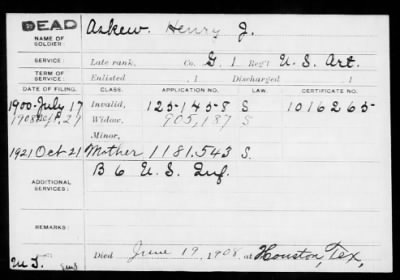 DEAD
NAME OF SOLDIER: Askew. Henry J.
SERVICE: Late rank, Co. G, 1 Reg't U. S. Art.
TERM OF SERVICE: Enlisted , 1 Discharged , 1
DATE OF FILING. CLASS. APPLICATION NO. LAW. CERTIFICATE NO.
1900 July 17 Invalid, 125-145-8 S 1016265-
1908 27 Widow, 905,187 S
Minor,
1921 Oct 21 Mother 1181.543 S.
ADDITIONAL SERVICES: B 6 U. S. Inf.
REMARKS:
Died June 19, 1908, at Houston, Tex,